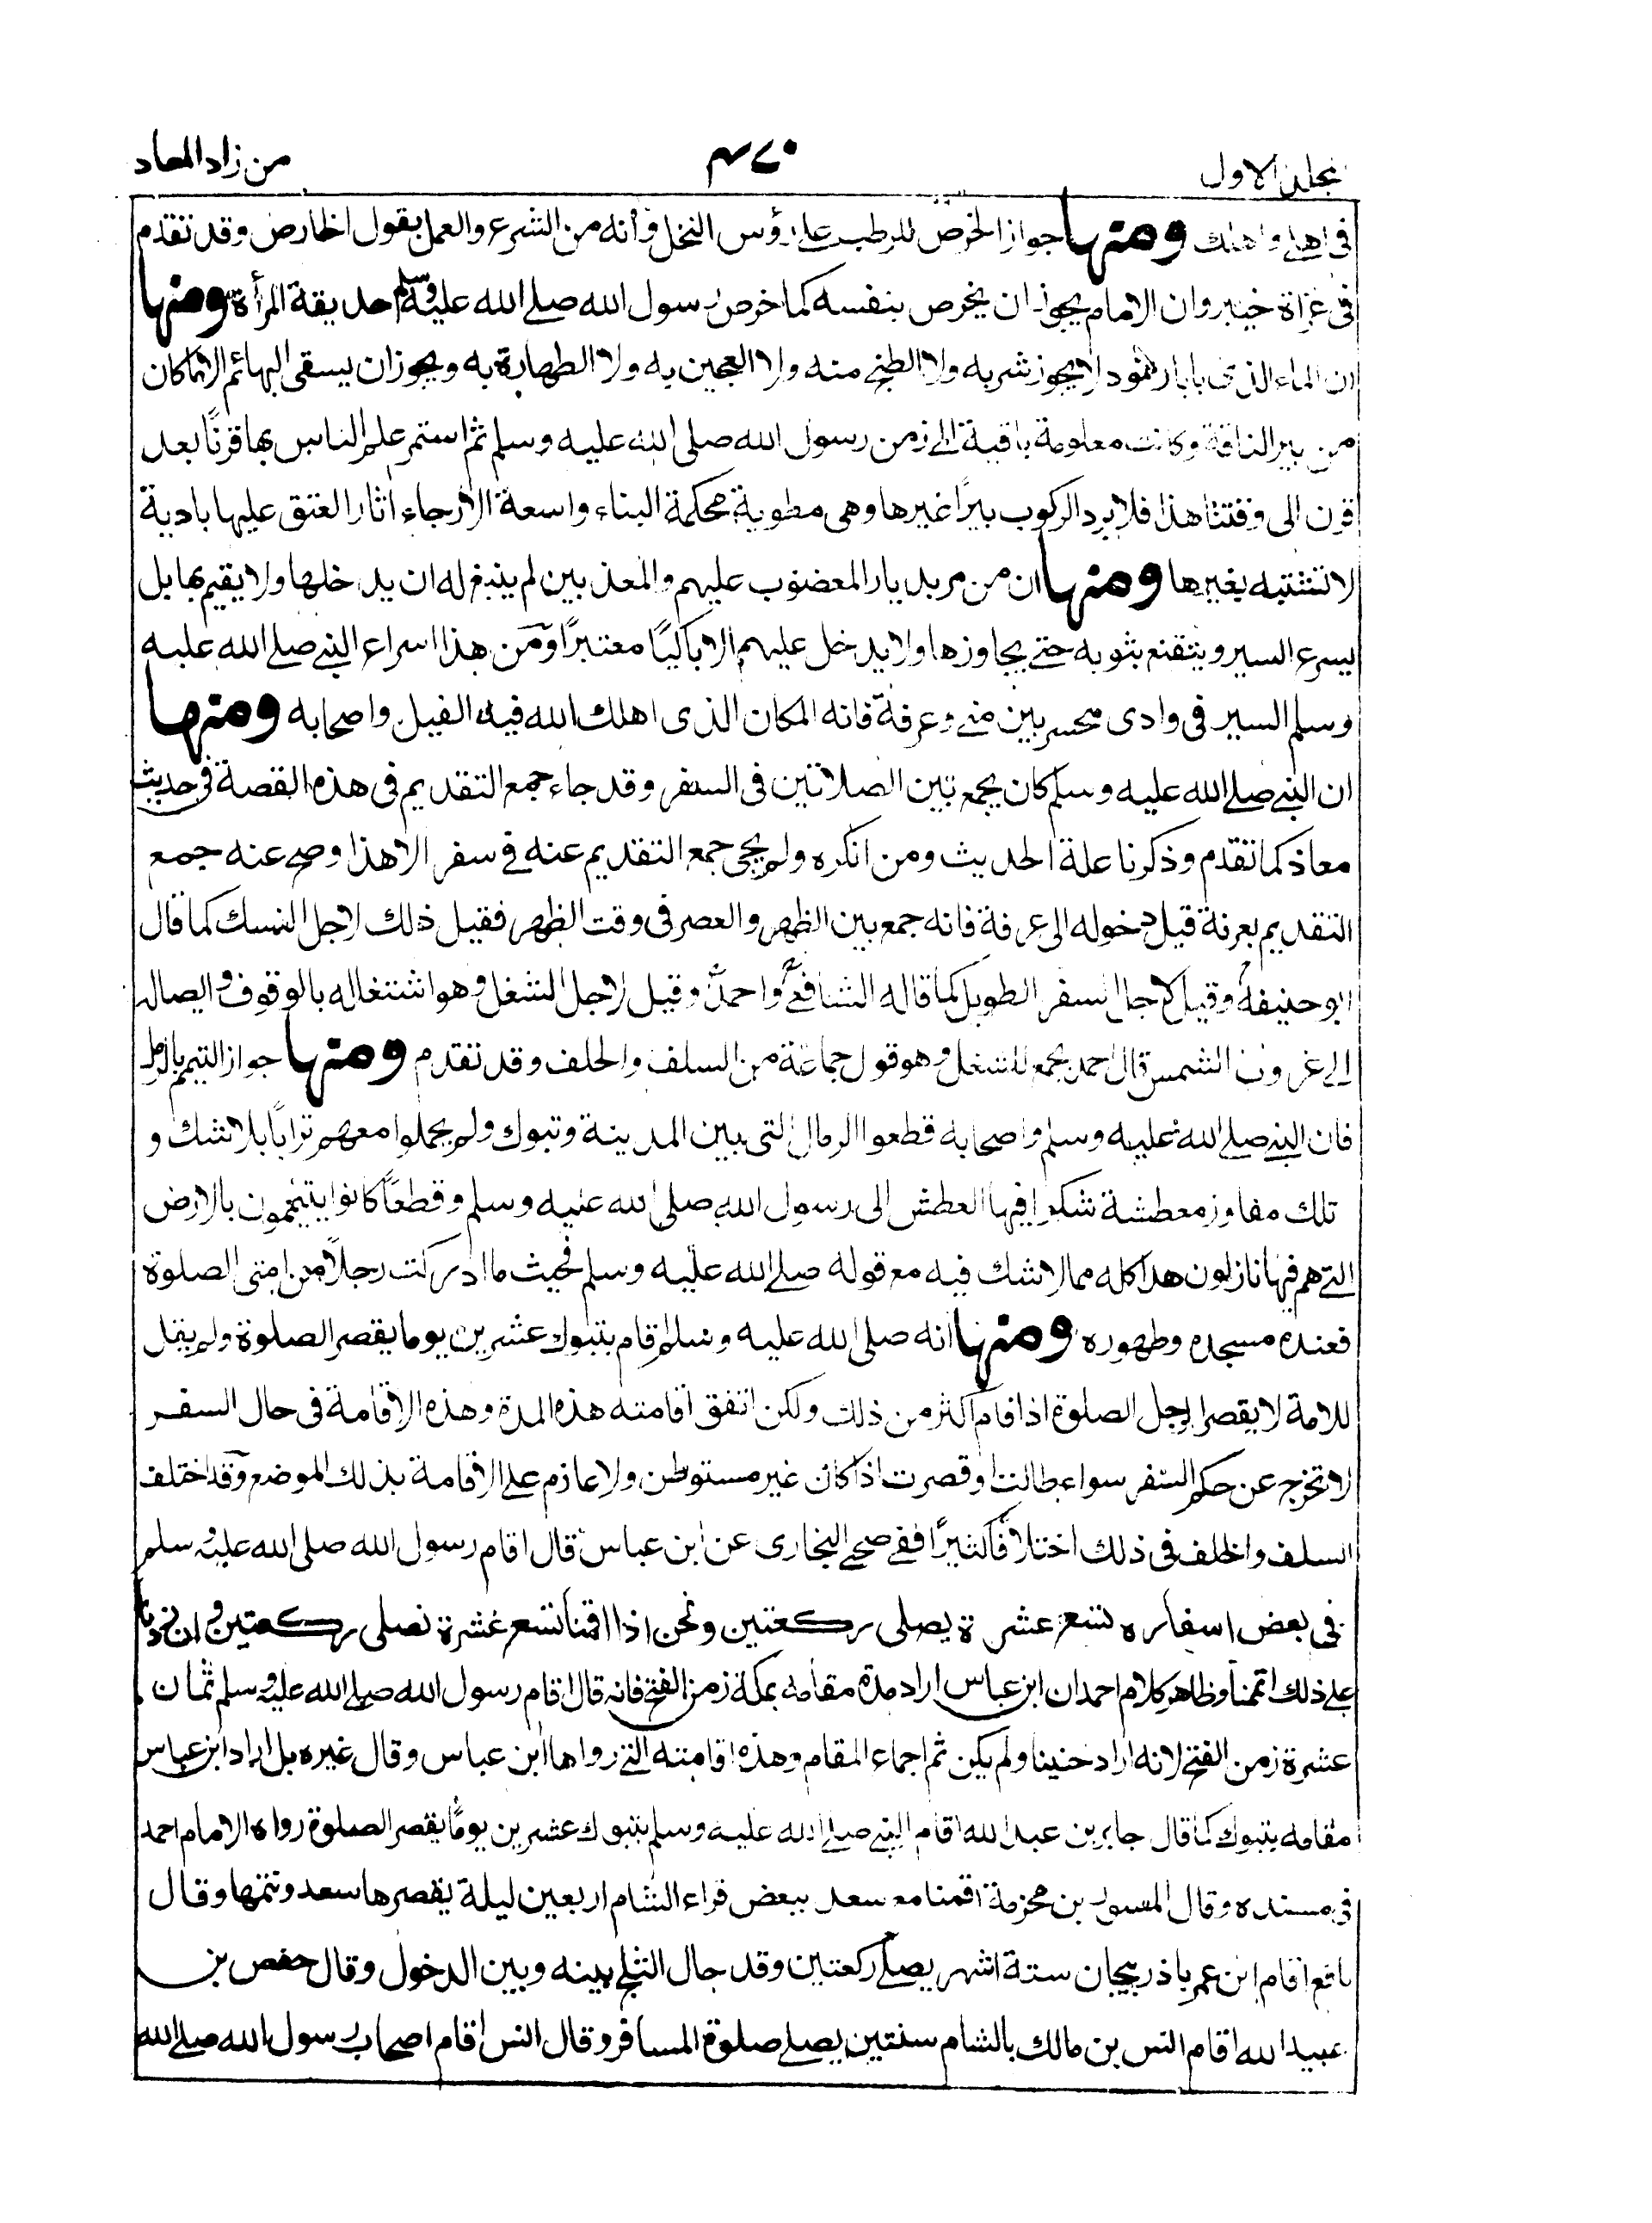 من زاد المعاد
٤٧٠
المجلد الاول
فى اهلى واهلك ومنها جواز الخرص للرطب على رؤس النخل وأنه من الشرع والعمل بقول الخارص وقد تقدم
فى غزاة خيبر وان الامام يجوز ان يخرص بنفسه كما خرص رسول الله صلى الله عليه وسلم حديقة المرأة ومنها
ان الماء الذى بابار ثمود لا يجوز شربه ولا الطبخ منه ولا العجين به ولا الطهارة به ويجوز ان يسقى البهائم الا ما كان
من بير الناقة وكانت معلومة باقية الى زمن رسول الله صلى الله عليه وسلم ثم استمر علم الناس بها قرنًا بعد
قرن الى وقتنا هذا فلا يرد الركوب بيرًا غيرها وهى مطوية محكمة البناء واسعة الارجاء اثار العتق عليها بادية
لا تشتبه بغيرها ومنها ان من مر بديار المغضوب عليهم والمعذبين لم ينبغ له ان يدخلها ولا يقيم بها بل
يسرع السير ويتقنع بثوبه حتى يجاوزها ولا يدخل عليهم الا باكيًا معتبرًا ومن هذا اسراع النبى صلى الله عليه
وسلم السير فى وادى محسر بين منى وعرفة فانه المكان الذى اهلك الله فيه الفيل واصحابه ومنها
ان النبى صلى الله عليه وسلم كان يجمع بين الصلاتين فى السفر وقد جاء جمع التقديم فى هذه القصة فى حديث
معاذ كما تقدم وذكرنا علة الحديث ومن انكره ولم يجئ جمع التقديم عنه فى سفر الا هذا وصح عنه جمع
التقديم بعرنة قبل دخوله الى عرفة فانه جمع بين الظهر والعصر فى وقت الظهر فقيل ذلك لاجل النسك كما قال
ابو حنيفة وقيل لاجل السفر الطويل كما قاله الشافعى واحمد وقيل لاجل الشغل وهو اشتغاله بالوقوف واتصاله
الى غروب الشمس قال احمد يجمع للشغل وهو قول جماعة من السلف والخلف وقد تقدم ومنها جواز التيمم بالرمل
فان النبى صلى الله عليه وسلم واصحابه قطعوا الرمال التى بين المدينة وتبوك ولم يحملوا معهم ترابًا بلا شك و
تلك مفاوز معطشة شكوا فيها العطش الى رسول الله صلى الله عليه وسلم وقطعًا كانوا يتيممون بالارض
التى هم فيها نازلون هذا كله مما لا شك فيه مع قوله صلى الله عليه وسلم فحيث ما ادركت رجلاً من امتى الصلوة
فعنده مسجده وطهوره ومنها انه صلى الله عليه وسلم اقام بتبوك عشرين يوما يقصر الصلوة ولم يقل
للامة لا يقصر الرجل الصلوة اذا اقام اكثر من ذلك ولكن اتفق اقامته هذه المدة وهذه الاقامة فى حال السفر
لا تخرج عن حكم السفر سواء طالت او قصرت اذا كان غير مستوطن ولا عازم على الاقامة بذلك الموضع وقد اختلف
السلف والخلف فى ذلك اختلافًا كثيرًا ففى صحيح البخارى عن ابن عباس قال اقام رسول الله صلى الله عليه وسلم
فى بعض اسفاره تسع عشرة يصلى ركعتين ونحن اذا اقمنا تسع عشرة نصلى ركعتين وان زدنا
على ذلك اتممنا وظاهر كلام احمد ان ابن عباس اراد مدة مقامه بمكة زمن الفتح فانه قال اقام رسول الله صلى الله عليه وسلم ثمان
عشرة زمن الفتح لانه اراد حنينا ولم يكن ثم اجماع المقام وهذه اقامته التى رواها ابن عباس وقال غيره بل اراد ابن عباس
مقامه بتبوك كما قال جابر بن عبد الله اقام النبى صلى الله عليه وسلم بتبوك عشرين يومًا يقصر الصلوة رواه الامام احمد
فى مسنده وقال المسور بن مخرمة اقمنا مع سعد ببعض قراء الشام اربعين ليلة يقصرها سعد ونتمها وقال
نافع اقام ابن عمر باذربيجان ستة اشهر يصلى ركعتين وقد حال الثلج بينه وبين الدخول وقال حفص بن
عبيد الله اقام انس بن مالك بالشام سنتين يصلى صلوة المسافر وقال انس اقام اصحاب رسول الله صلى الله